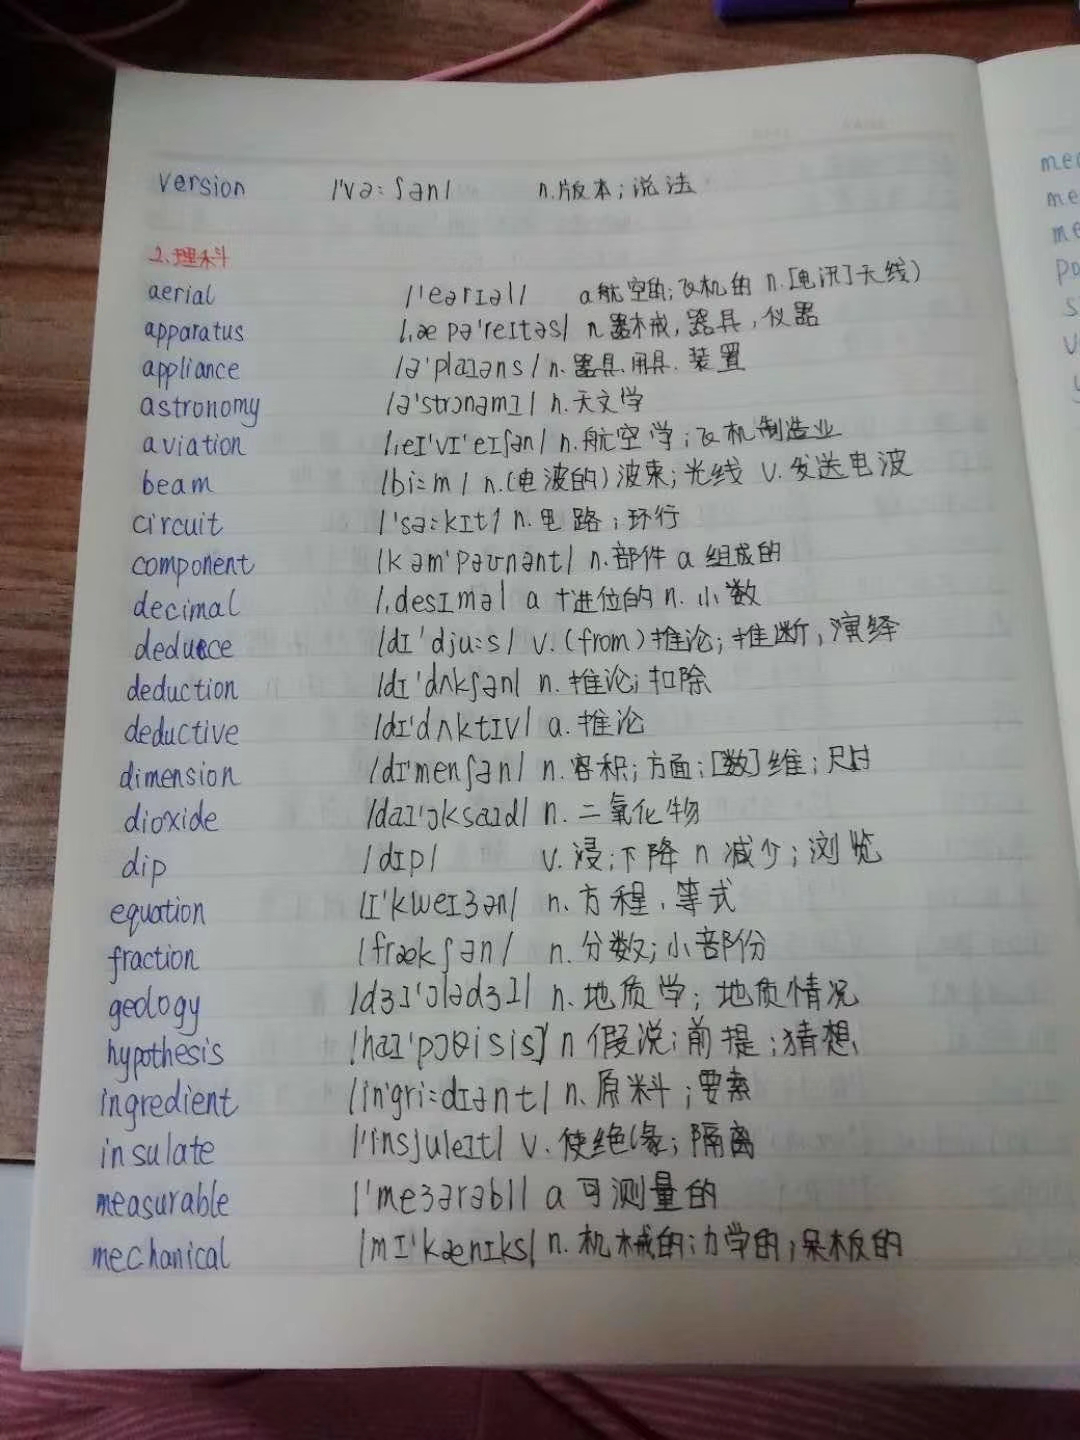 version /'və:ʃən/ n.版本;说法
2.理科
aerial /'eərɪəl/ a航空的;飞机的 n.[电讯]天线)
apparatus /,æpə'reɪtəs/ n器械,器具,仪器
appliance /ə'plaɪəns/ n.器具.用具.装置
astronomy /ə'strɔnəmɪ/ n.天文学
aviation /,eɪ'vɪ'eɪʃən/ n.航空学;飞机制造业
beam /bi:m/ n.(电波的)波束;光线 v.发送电波
circuit /'sə:kɪt/ n.电路;环行
component /kəm'pəʊnənt/ n.部件 a组成的
decimal /,desɪməl a十进位的 n.小数
deduce /dɪ'dju:s/ v.(from)推论;推断,演绎
deduction /dɪ'dʌkʃən/ n.推论;扣除
deductive /dɪ'dʌktɪv/ a.推论
dimension /dɪ'menʃən/ n.容积;方面;[数]维;尺寸
dioxide /daɪ'ɔksaɪd/ n.二氧化物
dip /dɪp/ v.浸;下降 n减少;浏览
equation /ɪ'kweɪʒən/ n.方程.等式
fraction /frækʃən/ n.分数;小部份
geology /dʒɪ'ɔlədʒɪ/ n.地质学;地质情况
hypothesis /haɪ'pɔθisis/ n假说;前提;猜想
ingredient /in'gri:dɪənt/ n.原料;要素
insulate /'insjuleɪt/ v.使绝缘;隔离
measurable /'meʒərəbl/ a可测量的
mechanical /mɪ'kænɪks/ n.机械的;力学的;呆板的